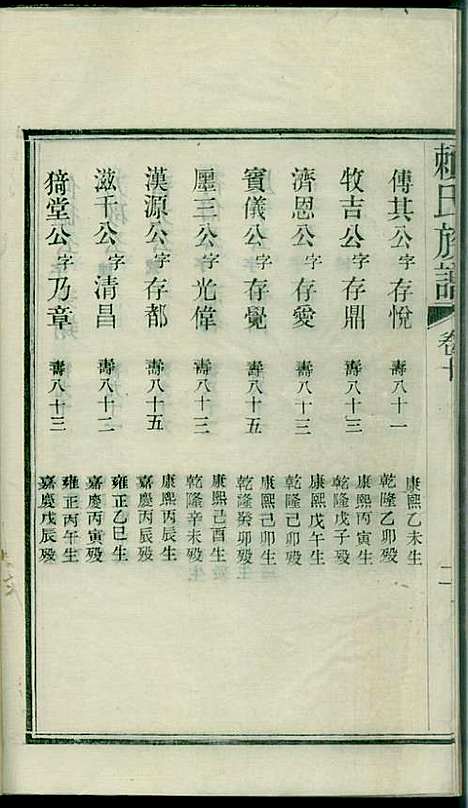 賴氏族譜
卷十
二
傳其公字存悅 壽八十一
康熙乙未生
乾隆乙卯歿
牧吉公字存鼎 壽八十三
康熙丙寅生
乾隆戊子歿
濟恩公字存愛 壽八十三
康熙戊午生
乾隆己卯歿
賓儀公字存覺 壽八十五
康熙己卯生
乾隆癸卯歿
壐三公字光偉 壽八十三
康熙己酉生
乾隆辛未歿
漢源公字存都 壽八十五
康熙丙辰生
嘉慶丙辰歿
滋千公字清昌 壽八十二
雍正乙巳生
嘉慶丙寅歿
猗堂公字乃章 壽八十三
雍正丙午生
嘉慶戊辰歿